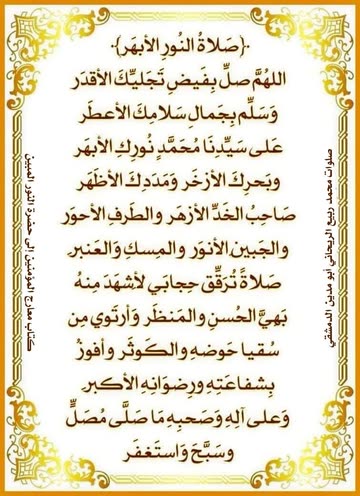 ﴿صَلاةُ النُورِ الأبهَر﴾
اللهُمَّ صلِّ بِفَيضِ تَجَليِّكَ الأقدَر
وَسَلِّم بِجَمالِ سَلامِكَ الأعطَر
عَلى سَيِّدِنَا مُحَمَّدٍ نُورِكِ الأبهَر
وبَحرِكَ الأزخَر وَمَدَدِكَ الأظهَر
صَاحِبُ الخَدِّ الأزهَر والطَرفِ الأحوَر
والجَبينِ الأنوَر والمِسكِ والعَنبَر
صَلاةً تُرَقِّق حِجابي لأشهَدَ مِنهُ
بَهيَّ الحُسنِ والمَنظَر وَأرتَوي مِن
سُقيا حَوضِهِ والكَوثَر وأفوزُ
بِشفاعَتِهِ ورِضوَانِهِ الأكبَر
وَعَلى آلِهِ وَصَحبِهِ مَا صَلَّى مُصَلٍّ
وسَبَّحَ وَاستَغفَر
صلوات محمد ربيع الريحاني أبو مدين الدمشقي
كتاب معارج المؤمنين إلى حضرة النور المبين